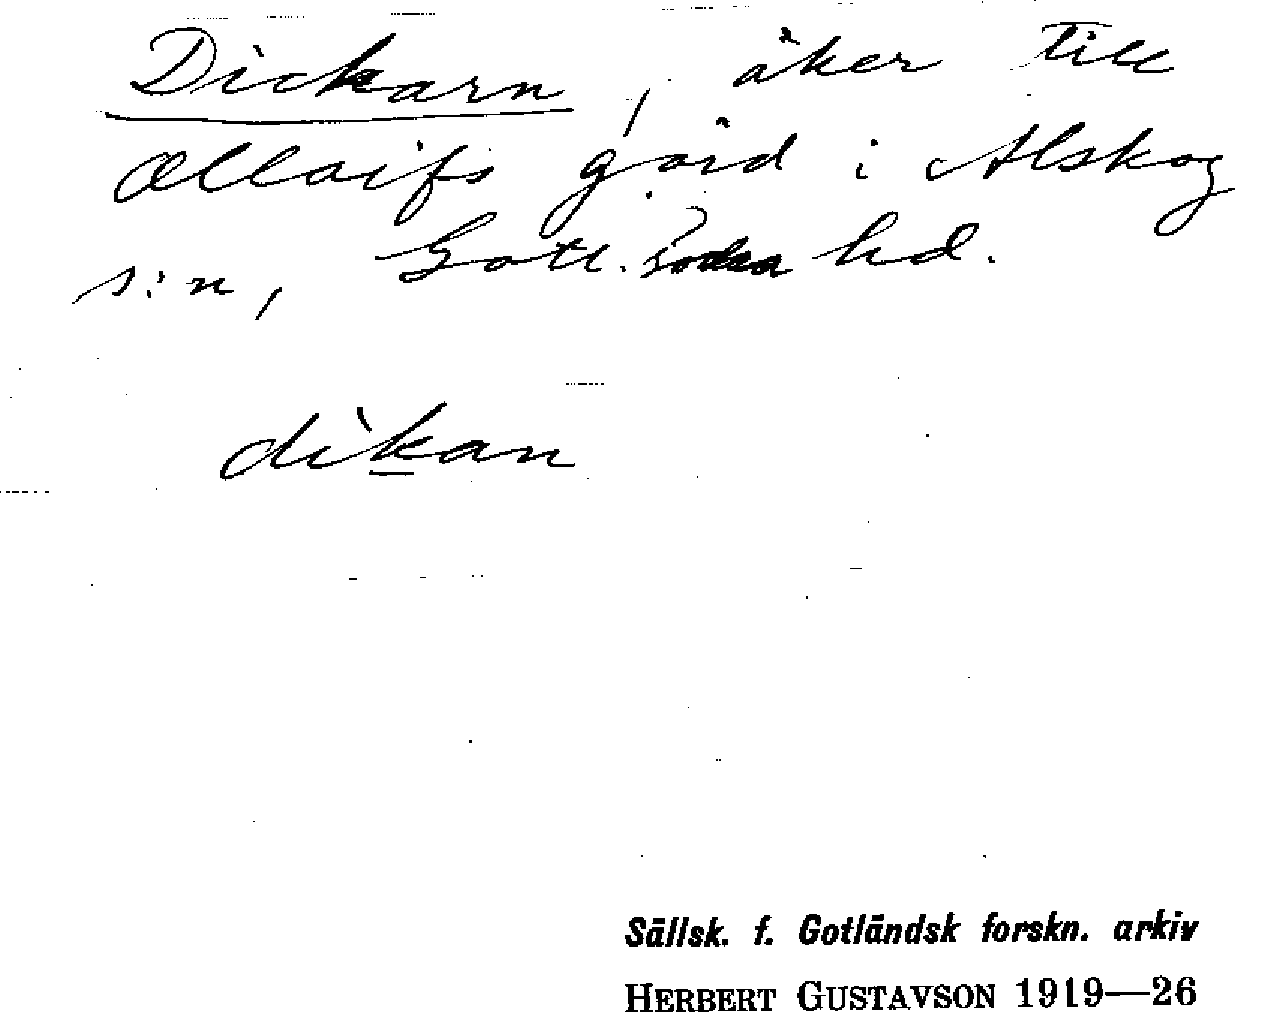 Dickarn, åker till
Ollaifs gård i Alskog
s:n, Gotl. södra hd.
dikan
Sällsk. f. Gotländsk forskn. arkiv
HERBERT GUSTAVSON 1919—26